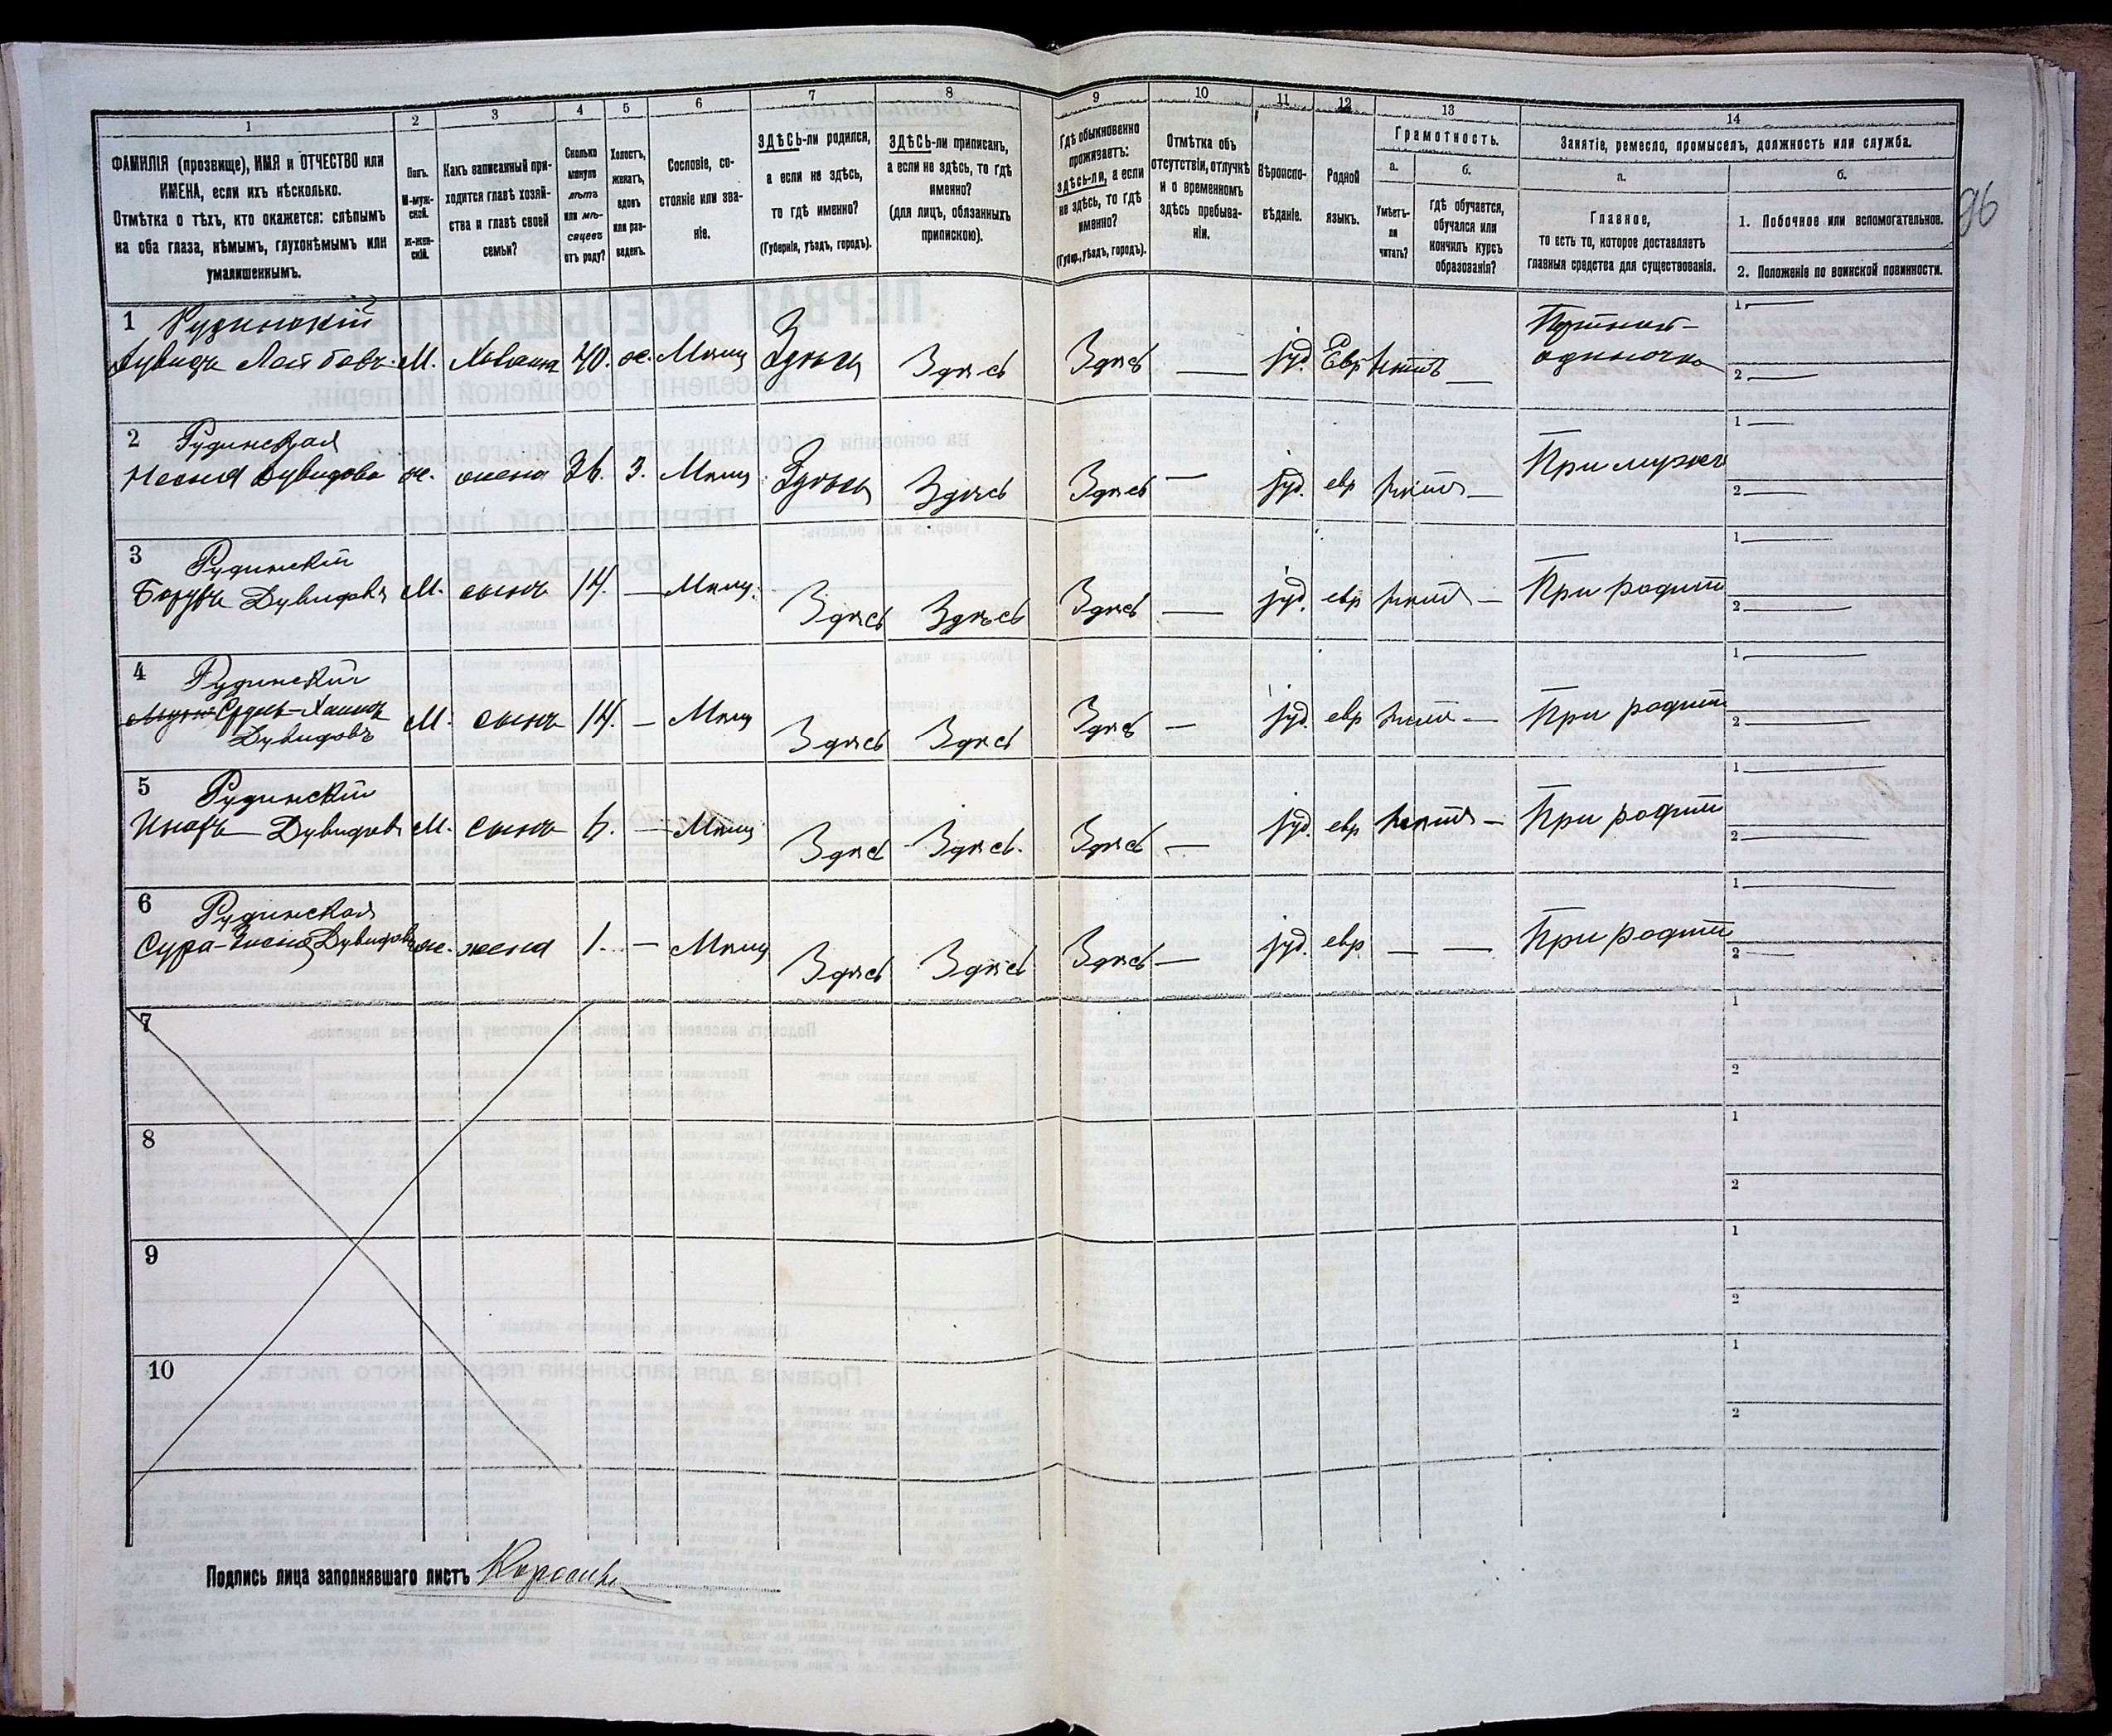 1 2 3 4 5 6 7 8 9 10 11 12 13 14
ФАМИЛІЯ (прозвище), ИМЯ и ОТЧЕСТВО или
ИМЕНА, если ихъ нѣсколько.
Отмѣтка о тѣхъ, кто окажется: слѣпымъ
на оба глаза, нѣмымъ, глухонѣмымъ или
умалишеннымъ.
Полъ.
М-муж-
ской.
ж-жен-
скій.
Какъ записанный при-
ходится главѣ хозяй-
ства и главѣ своей
семьи?
Сколько
минуло
лѣтъ
или мѣ-
сяцевъ
отъ роду?
Холостъ,
женатъ,
вдовъ
или раз-
веденъ.
Сословіе, со-
стояніе или зва-
ніе.
ЗДѢСЬ-ли родился,
а если не здѣсь,
то гдѣ именно?
(Губернія, уѣздъ, городъ).
ЗДѢСЬ-ли приписанъ,
а если не здѣсь, то гдѣ
именно?
(для лицъ, обязанныхъ
припискою).
Гдѣ обыкновенно
проживаетъ:
здѣсь-ли, а если
не здѣсь, то гдѣ
именно?
(Губер., уѣздъ, городъ).
Отмѣтка объ
отсутствіи, отлучкѣ
и о временномъ
здѣсь пребыва-
ніи.
Вѣроиспо-
вѣданіе.
Родной
языкъ.
Грамотность.
а.
Умѣетъ-
ли
читать?
б.
гдѣ обучается,
обучался или
кончилъ курсъ
образованія?
Занятіе, ремесло, промыселъ, должность или служба.
а.
Главное,
то есть то, которое доставляетъ
главныя средства для существованія.
б.
1. Побочное или вспомогательное.
2. Положеніе по воинской повинности.
96
1 Рудинскій
Дувидъ Лейбовъ М. Хозяинъ 40. ж. Мѣщ Здѣсь Здѣсь Здѣсь — іуд. Евр — Портной-
одиночка
1 —
2 —
2 Рудинская
Дувидова ж. жена 36. З. Мѣщ Здѣсь Здѣсь Здѣсь — іуд. евр — При мужѣ
1 —
2 —
3 Рудинскій
Борухъ Дувидовъ М. сынъ 14. — Мѣщ. Здѣсь Здѣсь Здѣсь — іуд. евр — При родит
1 —
2 —
4 Рудинскій
Хаимъ
Дувидовъ М. сынъ 14. — Мѣщ Здѣсь Здѣсь Здѣсь — іуд. евр — При родит
1 —
2 —
5 Рудинскій
Дувидовъ М. сынъ 6. — Мѣщ Здѣсь Здѣсь. Здѣсь — іуд. евр — При родит
1 —
2 —
6 Рудинская
Сура- Дувидов ж. жена 1. — Мѣщ Здѣсь Здѣсь Здѣсь — іуд. евр. — — При родит
1 —
2 —
7
1
2
8
1
2
9
1
2
10
1
2
Подпись лица заполнявшаго листъ